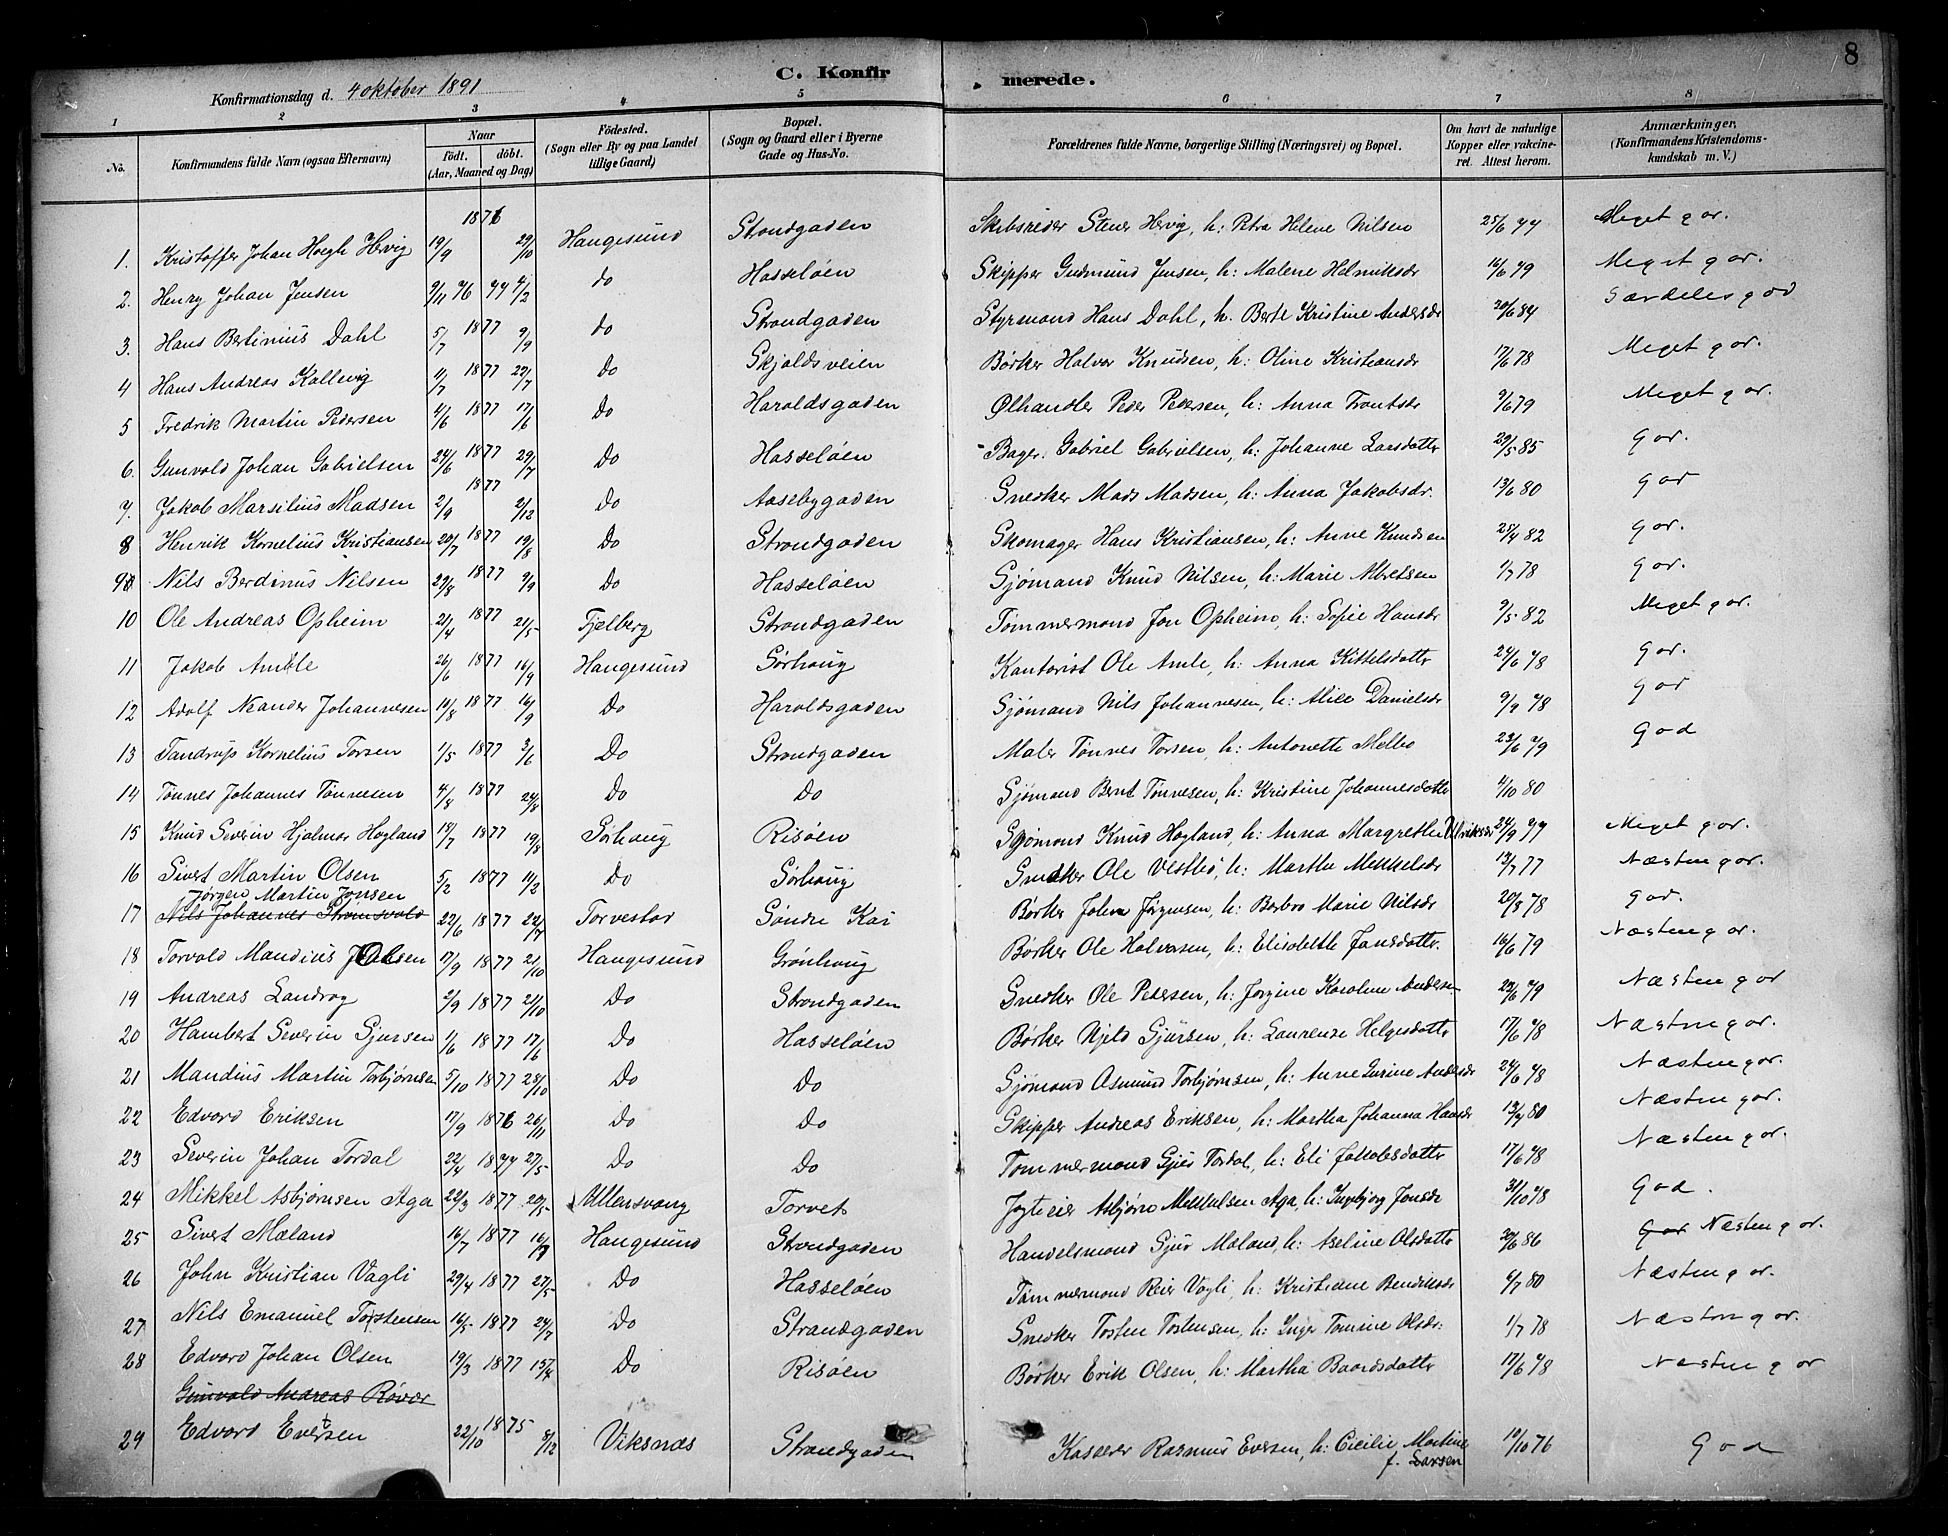 8
C. Konfirmerede.
Konfirmationsdag d. 4 oktober 1891
1 2 3 4 5 6 7 8
No. Konfirmandens fulde Navn (ogsaa Efternavn) Naar født. døbt. (Aar, Maaned og Dag) Fødested. (Sogn eller By og paa Landet tillige Gaard) Bopæl. (Sogn og Gaard eller i Byerne Gade og Hus-No. Forældrenes fulde Navne, borgerlige Stilling (Næringsvei) og Bopæl. Om havt de naturlige Kopper eller vakcineret. Attest herom. Anmærkninger, (Konfirmandens Kristendomskundskab m. V.)
1. Kristoffer Johan Høegh Hervig 19/9 1876 29/10 Haugesund Strandgaden Skibsreder Stener Hervig, h: Petra Helene Nilsen 25/6 77 Meget gor.
2. Henry Johan Jensen 9/11 76 77 4/2 do Hasseløen Skipper Gudmund Jensen, h: Malene Helmiksdr 16/6 79 Meget gor.
3. Hans Bertinius Dahl 5/7 1877 9/9 do Strandgaden Styrmand Hans Dahl, h. Berte Kristine Andersdr 20/6 84 Særdeles god
4 Hans Andreas Kallevig 4/7 1877 29/7 Do Skjoldsveien Bødker Halvor Knudsen, h: Oline Kristiansdr 17/6 78 Meget gor.
5 Fredrik Martin Pedersen 4/6 1877 17/6 Do Haraldsgaden Ølhandler Peder Pedersen, h: Anna Trontsdr 9/6 79 Meget gor.
6. Gunvald Johan Gabrielsen 24/6 1877 29/7 Do Hasseløen Bager. Gabriel Gabrielsen, h: Johanne Larsdatter 29/5 85 gor.
7. Jakob Marsilius Madsen 2/9 1877 2/12 Do Aasebygaden Snedker Mads Madsen, h: Anna Jakobsdr. 13/6 80 god
8 Henrik Kornelius Kristiansen 20/7 1877 19/8 Do Strandgaden Skomager Hans Kristiansen, h: Anne Knudsen 25/4 82 gor.
9 Nils Berdinus Nilsen 29/8 1877 9/9 Do Hasseløen Sjømand Knud Nilsen, h: Marie Albretsen 1/7 78 gor.
10 Ole Andreas Opheim 21/4 1877 21/5 Fjelberg Strandgaden Tømmermand Jon Opheim, h: Sofie Hansdr 9/5 82 Meget gor.
11 Jakob Amble 26/6 1877 16/9 Haugesund Sørhaug Kantorist Ole Amle, h: Anna Kittelsdatter 24/6 78 gor.
12 Adolf Neander Johannesen 10/8 1877 16/9 Do Haraldsgaden Sjømand Nils Johannesen, h: Alice Danielsdr 9/9 78 god
13 Tandrup Kornelius Torsen 1/5 1877 3/6 Do Strandgaden Maler Tønnes Torsen, h: Antonette Melbo 23/6 79 God
14 Tønnes Johannes Tønnesen 4/8 1877 24/8 Do Do Sjømand Bernt Tønnesen, h: Kristine Johannesdatter 1/10 80
15 Knud Severin Hjalmar Hogland 18/7 1877 19/8 Sørhaug Risøen Sjømand Knud Hogland, h: Anna Margrethe Ulriksdr 24/9 77 Meget gor.
16 Sivert Martin Olsen 5/2 1877 11/2 Do Sørhaug Snedker Ole Vestbø, h: Martha Mikkelsdr 13/7 77 Næsten gor.
Jørgen Martin Jonsen
17 Nils Johannes Strømsvold 22/6 1877 22/7 Torvestad Søndre Kai Bødker John Jørgensen, h: Berbro Marie Nilsdr 20/8 78 god.
18 Torvald Mandius Olsen 17/9 1877 21/10 Haugesund Grønhaug Bødker Ole Halvorsen, h: Elisabeth Jansdatter. 16/6 79 Næsten gor.
19 Andreas Landrog 2/9 1877 21/10 Do Strandgaden Snedker Ole Pedersen, h: Jorgine Karoline Andersen 29/6 79 Næsten gor
20 Hambert Severin Gjursen 1/6 1877 17/6 Do Hasseløen Bødker Njeld Gjursen, h: Laurense Helgesdatter 17/6 78 Næsten gor.
21 Mandius Martin Torbjørnsen 5/10 1877 28/10 Do Do Sjømand Asmund Torbjørnsen, h: Anne Gurine Andersdr 24/6 78 Næsten gor.
22 Edvard Eriksen 17/9 1876 26/11 Do Do Skipper Andreas Eriksen, h: Martha Johanna Hansdr 13/9 80 Næsten gor.
23 Severin Johan Tordal 22/4 1877 27/5 Do Do Tømmermand Gjert Tordal, h: Eli Jakobsdatter 17/6 78 Næsten gor.
24 Mikkel Asbjørnsen Aga 22/3 1877 20/5 Ullensvang Torvet Jagteeier Asbjørn Mikkelsen Aga, h: Ingebjorg Jonsdr 31/10 78 God.
25 Sivert Mæland 16/7 1877 16/9 Haugesund Strandgaden Handelsmand Sjur Mæland, h: Aseline Olsdatter 29/6 86 Gor Næsten gor.
26 John Kristian Vagli 29/4 1877 27/5 Do Hasseløen Tømmermand Reier Vagli, h: Kristiane Bendiksdr 4/7 80 Næsten gor.
27 Nils Emanuel Torstensen 16/5 1877 24/7 Do Strandgaden Snedker Tosten Tostensen, h: Inger Tomine Olsdr: 1/7 78 Næsten gor.
28 Edvard Johan Olsen 19/3 1877 15/4 Do Risøen Bødker Erik Olsen, h: Martha Baardsdatter 17/6 78 Næsten gor
Gunvald Andreas Røvær
29 Edvard Evertsen 22/10 1875 8/12 Viksnæs Strandgaden Kasserer Rasmus Eversen, h: Cicilie Martine f. Larsen 10/10 76 God